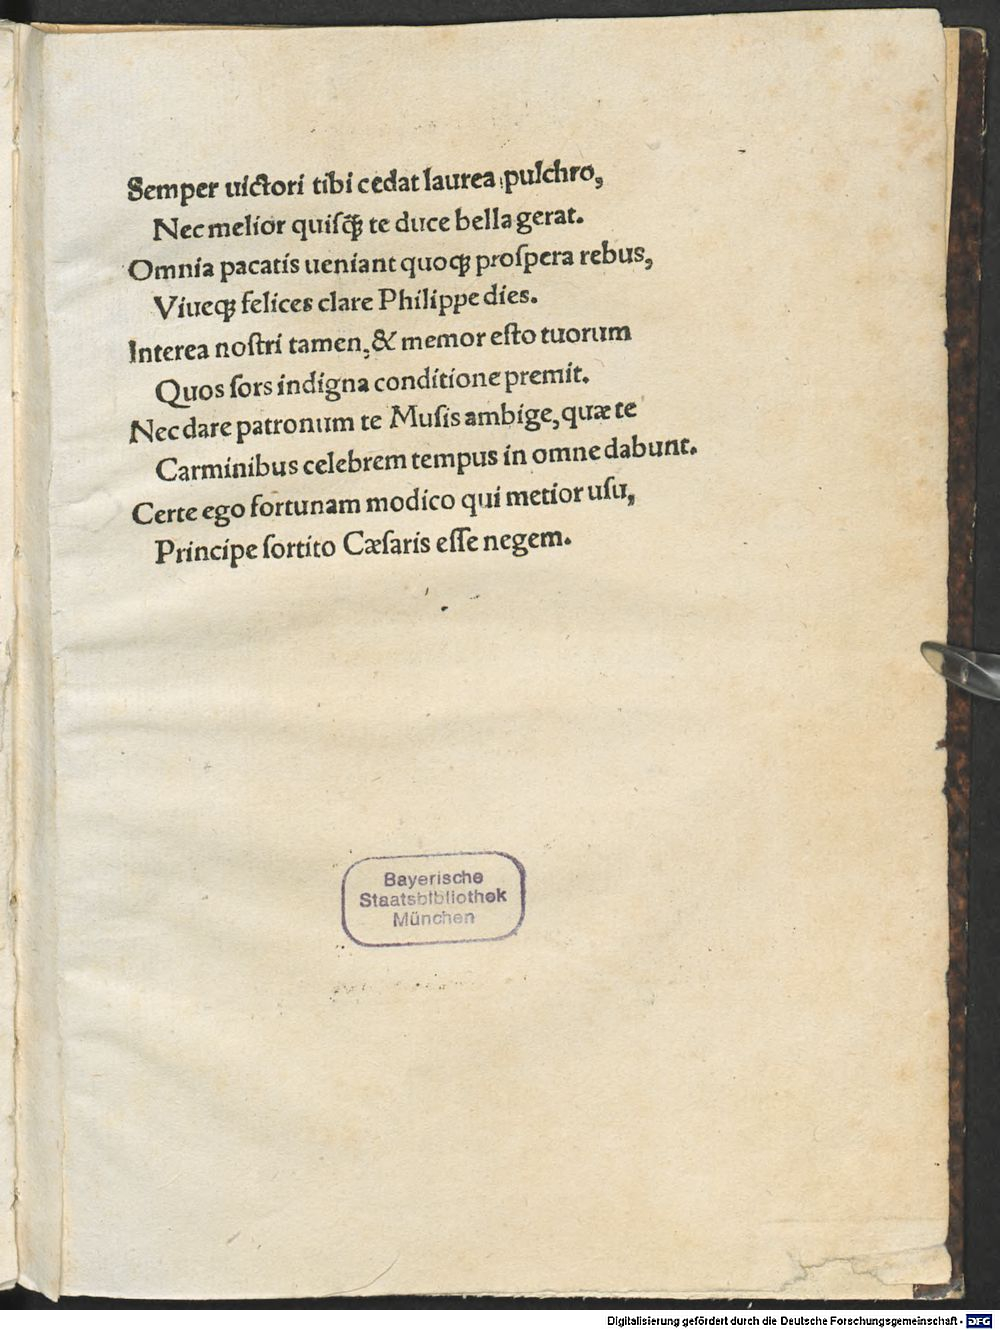 Semper uictori tibi cedat laurea pulchro,
Nec melior quiſꝙ̃ te duce bella gerat.
Omnia pacatis ueniant quoqꝫ proſpera rebus,
Viueqꝫ felices clare Philippe dies.
Interea noſtri tamen, & memor eſto tuorum
Quos ſors indigna conditione premit.
Nec dare patronum te Muſis ambige, quæ te
Carminibus celebrem tempus in omne dabunt.
Certe ego fortunam modico qui metior uſu,
Principe ſortito Cæſaris eſſe negem.
Bayerische
Staatsbibliothek
München
Digitalisierung gefördert durch die Deutsche Forschungsgemeinschaft - DFG